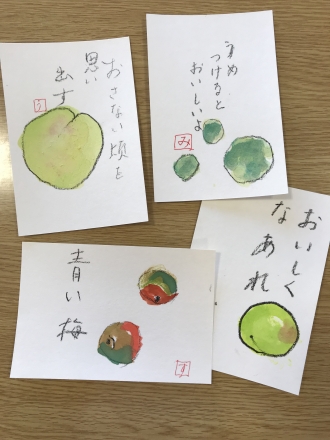 おさない頃を
思い
出す
う
うめ
つけると
おいしいよ
み
青い梅
す
おいしく
なあれ